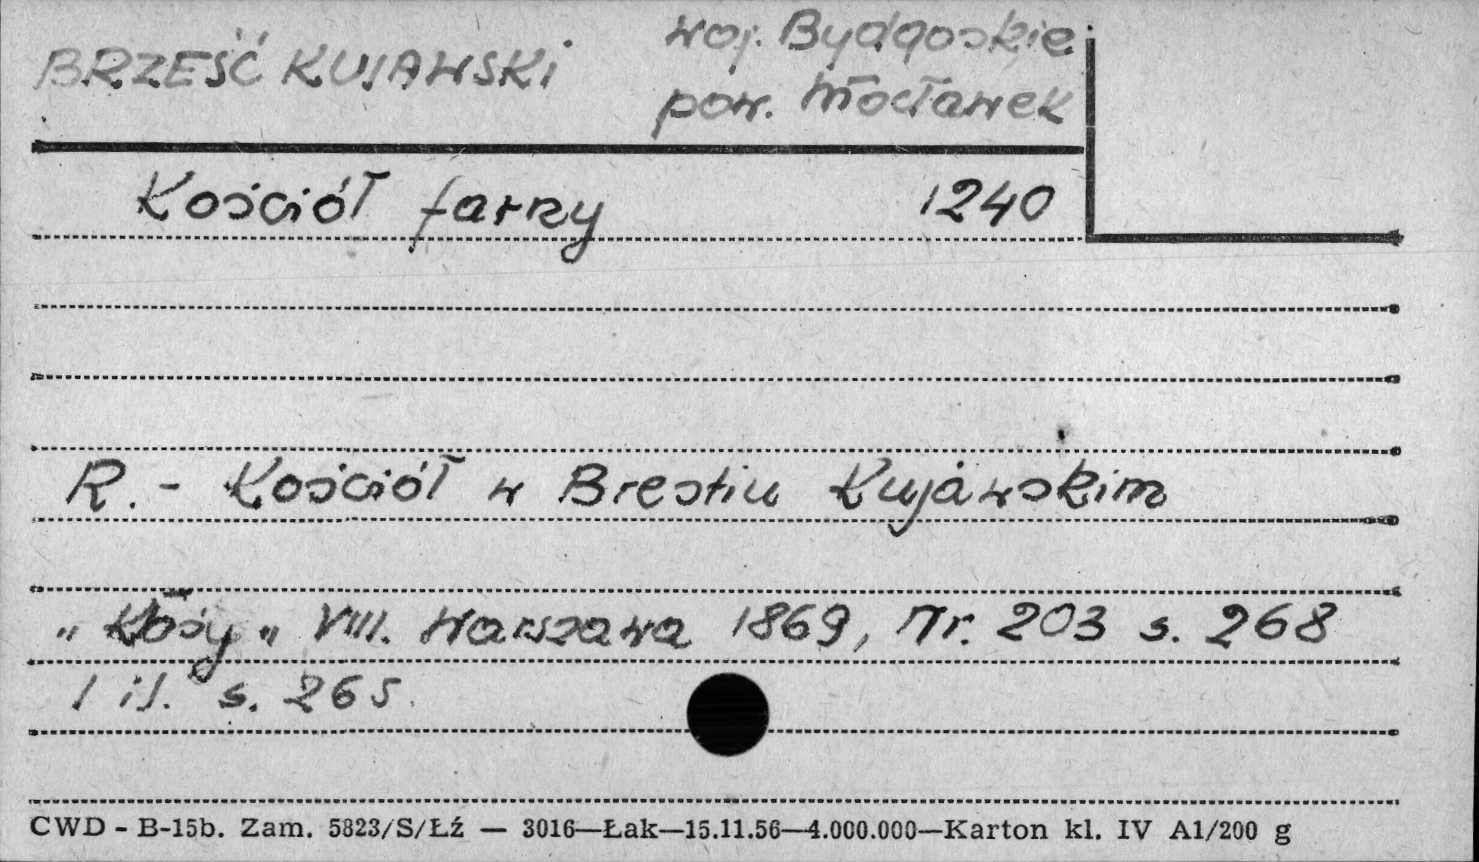 BRZEŚĆ KUJAWSKI
woj. Bydgoskie
pow. Włocławek
Kościół farny 1240
R. - Kościół w Brestiu Kujawskim
„Kłosy" VIII. Warszawa 1869, Nr. 203 s. 268
1 il. s. 265.
CWD - B-15b. Zam. 5823/S/Łź — 3016—Łak—15.11.56—4.000.000—Karton kl. IV A1/200 g